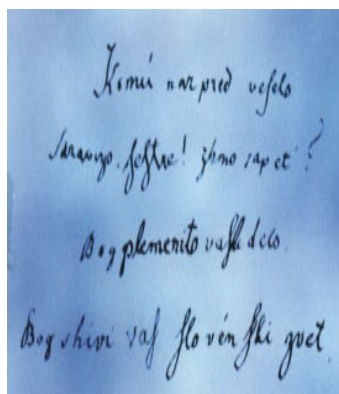 Komú nar pred veſelo
sdravizo, ſeſtre! zhmo sapet' ?
Bog plemenito delo.
Bog shivi vaſ ſlovénſki zvet